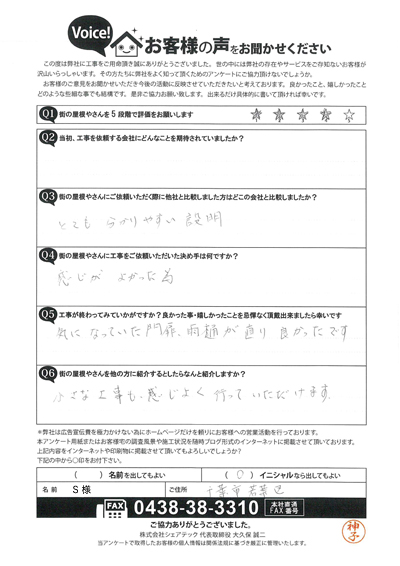 Voice!
お客様の声をお聞かせください
この度は弊社に工事をご用命頂き誠にありがとうございました。世の中には弊社の存在やサービスをご存知ないお客様が
沢山いらっしゃいます。その方たちに弊社をよく知って頂くためのアンケートにご協力頂けないでしょうか。
お客様のご意見をお聞かせいただき今後の活動に反映させていただきたいと考えております。良かったこと、嬉しかったこと
どのような些細な事でも結構です。是非ご協力お願い致します。出来るだけ具体的に書いて頂ければ幸いです。
Q1 街の屋根やさんを5段階で評価をお願いします ★ ★ ★ ★ ☆
Q2 当初、工事を依頼する会社にどんなことを期待されていましたか?
Q3 街の屋根やさんにご依頼いただく際に他社と比較しました方はどこの会社と比較しましたか?
とても 分かりやすい 説明
Q4 街の屋根やさんに工事をご依頼いただいた決め手は何ですか?
感じが よかった為
Q5 工事が終わってみていかがですか?良かった事・嬉しかったことを忌憚なく頂戴出来ましたら幸いです
気になっていた門扉、雨樋が直り 良かったです
Q6 街の屋根やさんを他の方に紹介するとしたらなんと紹介しますか?
小さな工事も、感じよく 行っていただけます。
※弊社は広告宣伝費を極力かけない為にホームページだけを頼りにお客様への営業活動を行っております。
本アンケート用紙またはお客様宅の調査風景や施工状況を随時ブログ形式のインターネットに掲載させて頂いております。
上記内容をインターネットや印刷物に掲載させて頂いてもよろしいでしょうか?
下記の中から○印をお付下さい。
( ) 名前を出してもよい ( ○ ) イニシャルなら出してもよい
名 前 S 様 ご住所 千葉市若葉区
FAX 0438-38-3310 本社直通 FAX番号
ご協力ありがとうございました。
株式会社シェアテック 代表取締役 大久保 誠二
当アンケートで取得したお客様の個人情報は関係法規に基づき厳正に管理いたします。
神子